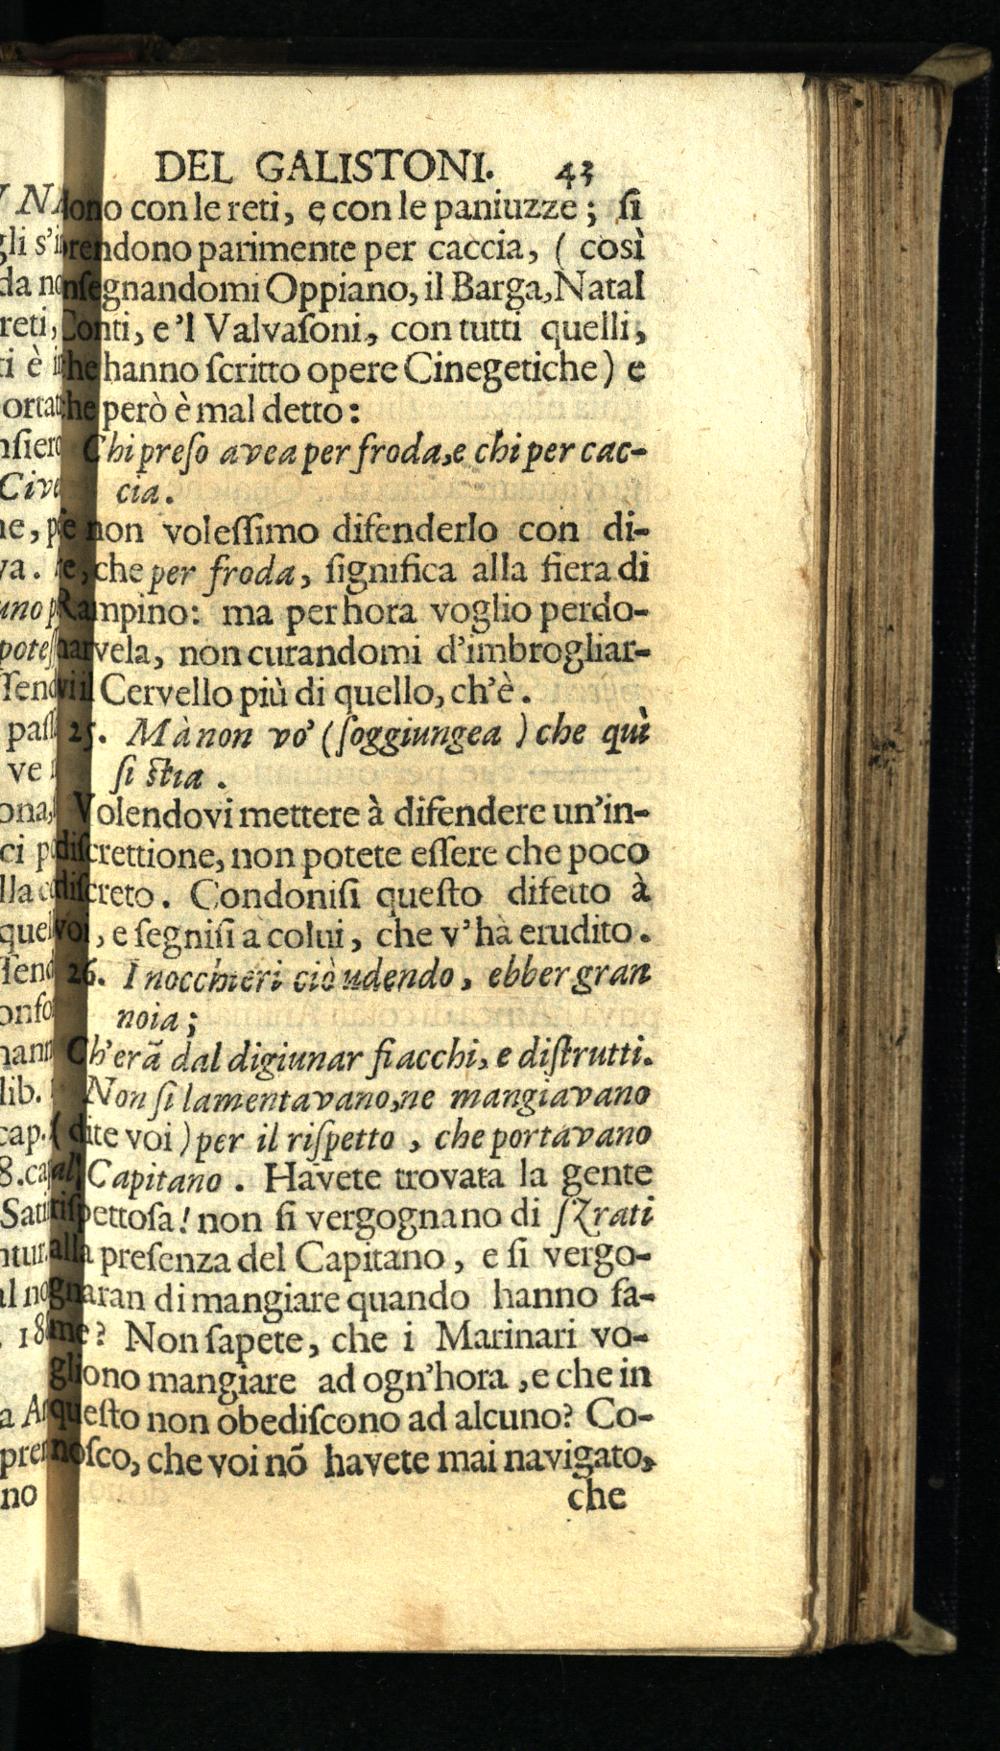 DEL GALISTONI. 43
dono con le reti, e con le paniuzze; ſi
prendono parimente per caccia, (così
inſegnandomi Oppiano, il Barga, Natal
Conti, e'l Valvaſoni, con tutti quelli,
che hanno ſcritto opere Cinegetiche) e
che però è mal detto:
Chi preſo avea per froda, e chi per cac-
cia.
ſe non voleſſimo difenderlo con di-
re, che per froda, ſignifica alla fiera di
Rampino: ma per hora voglio perdo-
narvela, non curandomi d'imbrogliar-
vi il Cervello più di quello, ch'è.
25. Mà non vo' (ſoggiungea) che quì
ſi ſtia.
Volendovi mettere à difendere un'in-
diſcrettione, non potete eſſere che poco
diſcreto. Condoniſi queſto difetto à
voi, e ſegniſi a colui, che v'hà erudito.
26. I nocchieri ciò udendo, ebber gran
noia;
Ch'erã dal digiunar fiacchi, e diſtrutti.
Non ſi lamentavano, ne mangiavano
(dite voi) per il riſpetto, che portavano
al Capitano. Havete trovata la gente
riſpettoſa! non ſi vergognano di ſZrati
alla preſenza del Capitano, e ſi vergo-
gnaran di mangiare quando hanno fa-
me? Non ſapete, che i Marinari vo-
gliono mangiare ad ogn'hora, e che in
queſto non obediſcono ad alcuno? Co-
noſco, che voi nõ havete mai navigato,
che